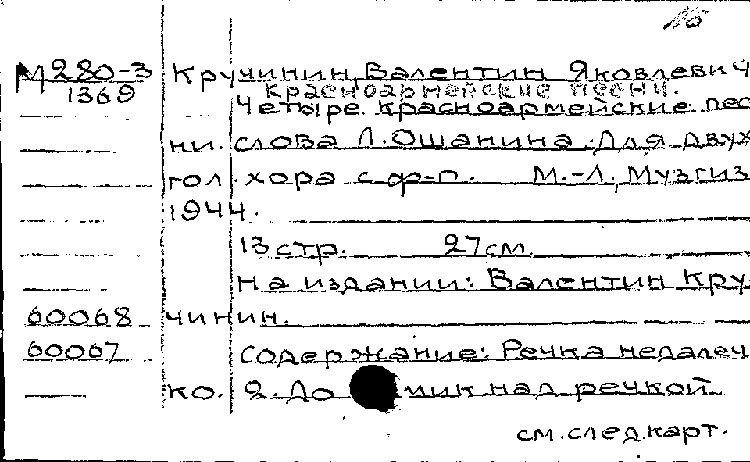 15
М280-3 Кручинин, Валентин Яковлевич
1369 Красноармейские песни.
Четыре красноармейские пес
ни. слова Л. Ошанина. Для двух
гол. хора с ф-п. М.-Л., Музгиз
1944.
13 стр. 27 см.
На издании: Валентин Кру
60068 чинин.
60067 Содержание: Речка недалеч
ко. 2. До мик над речкой
см. след. карт.